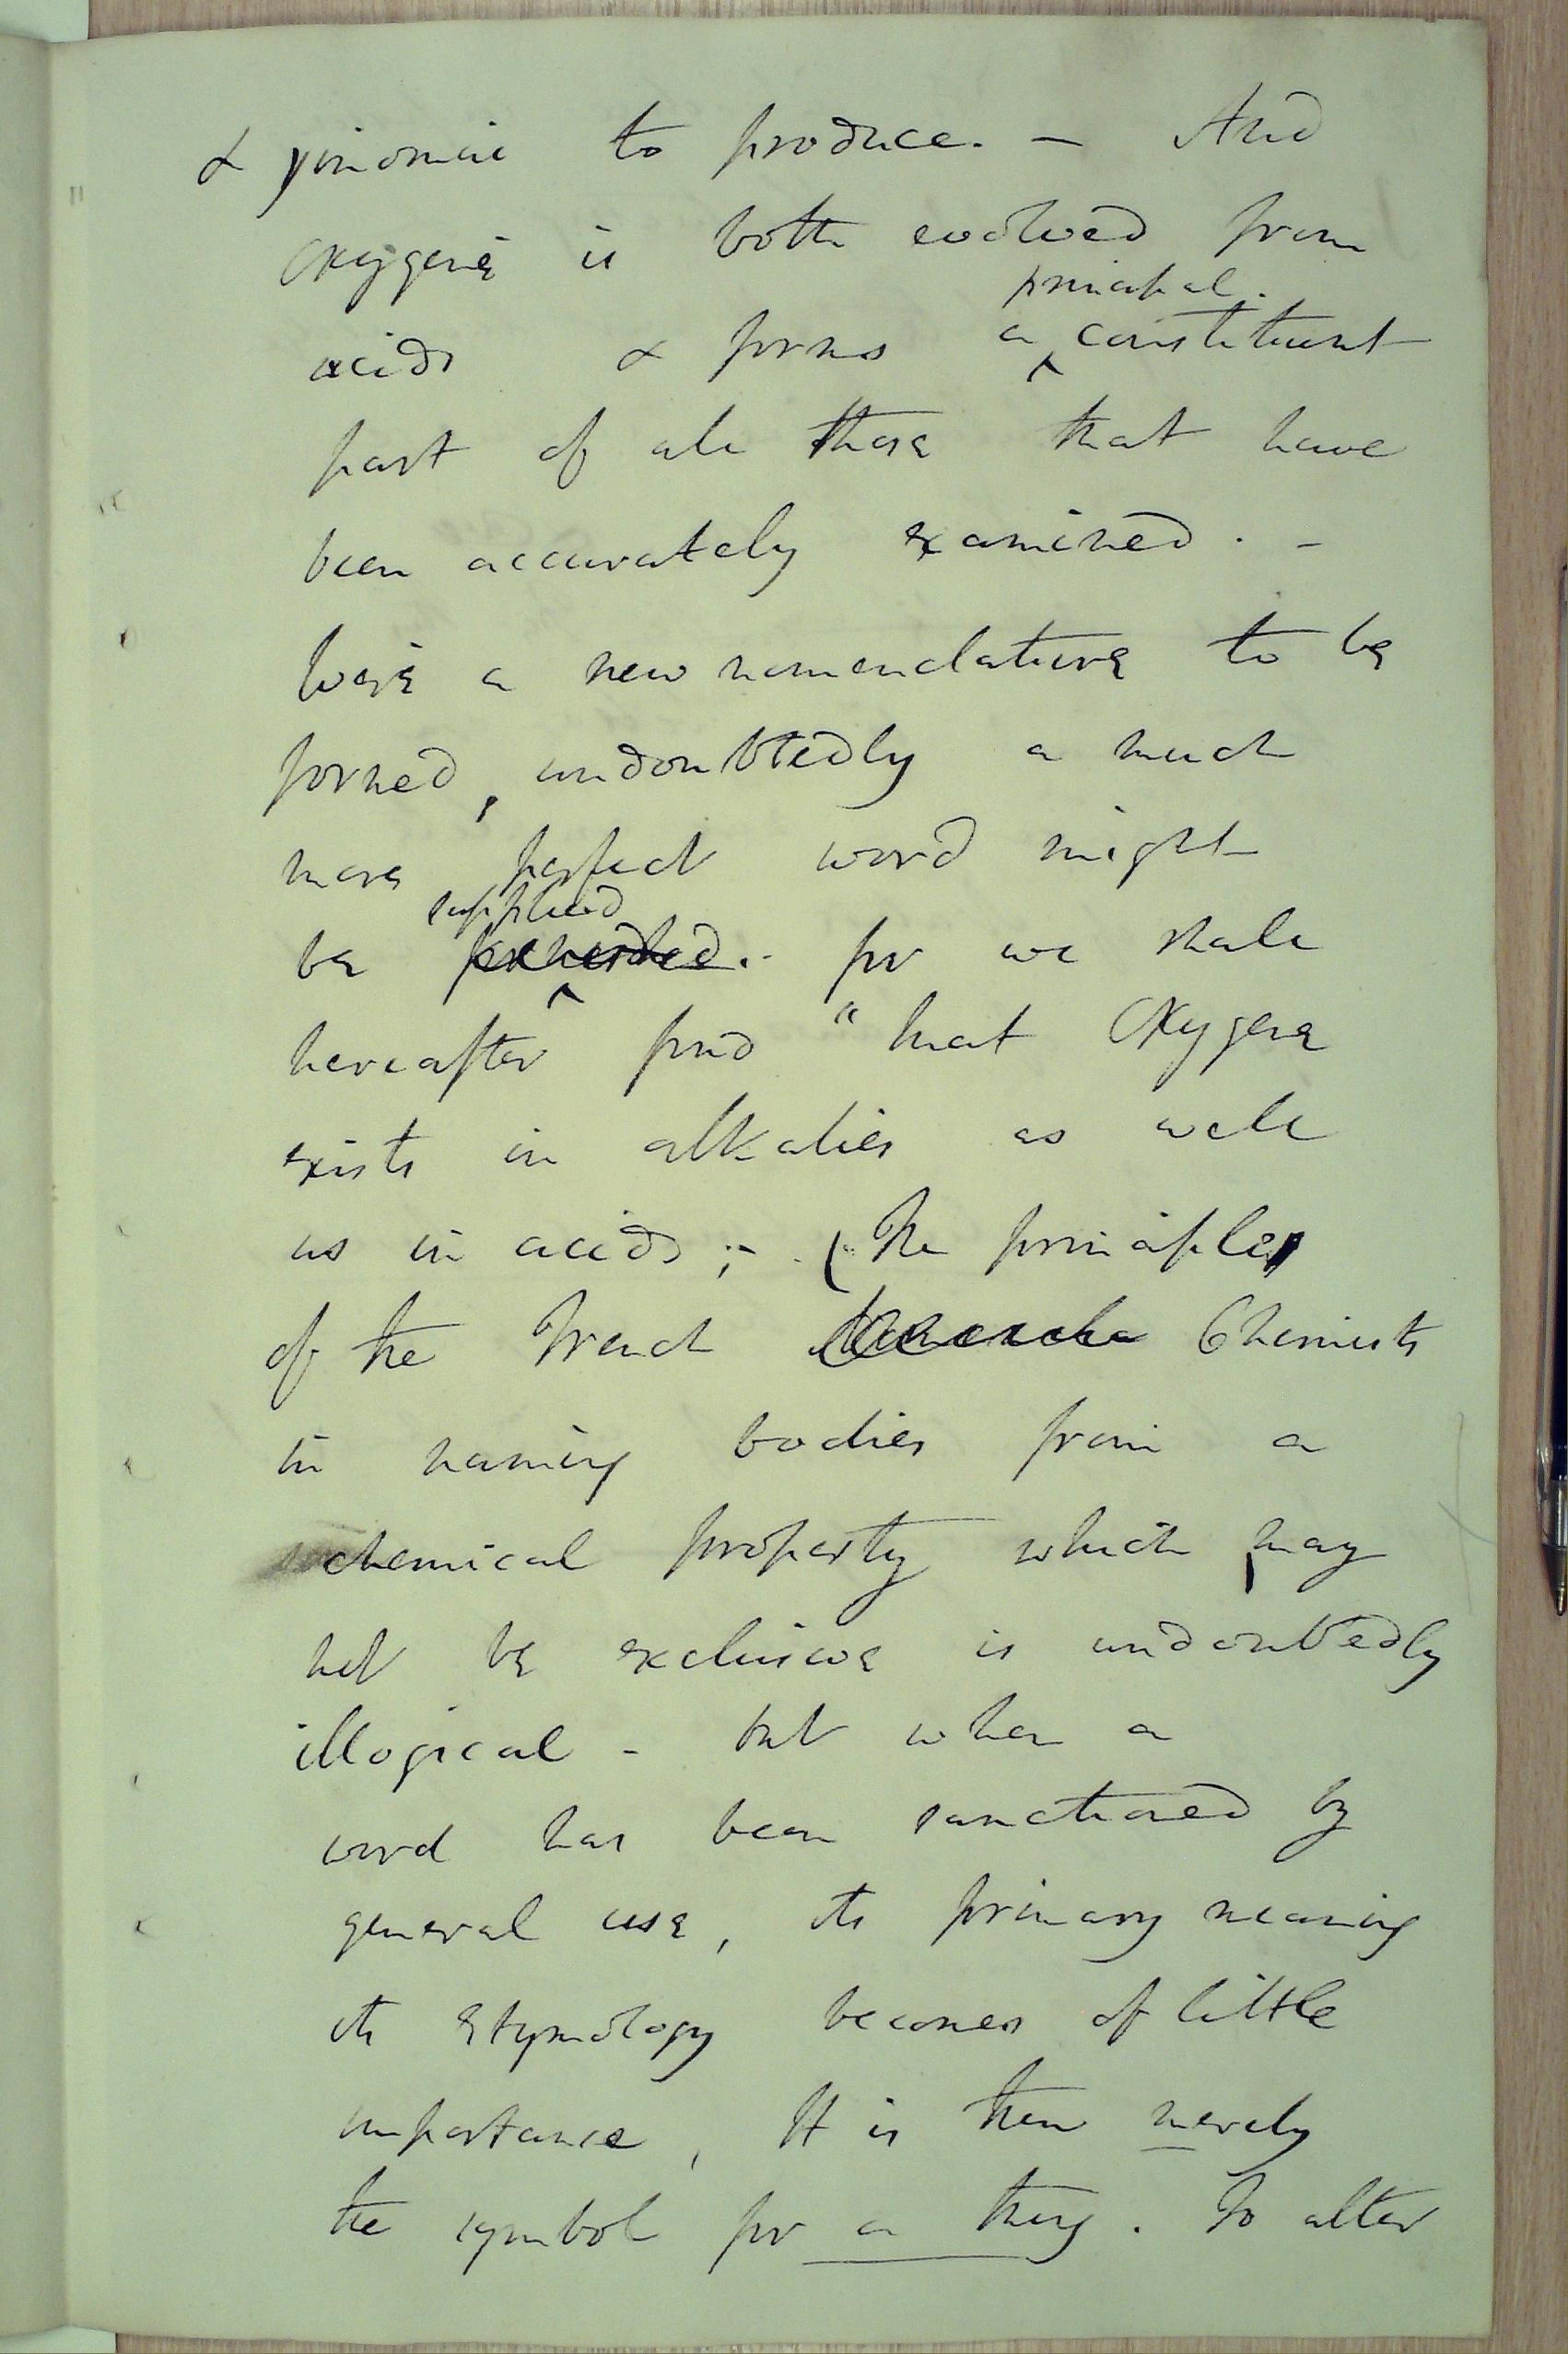 & γινομαι to produce. — And
Oxygene is both evolved from
principal.
acids & forms a constituent
part of all those that have
been accurately examined. –
Were a new nomenclature to be
formed, undoubtedly a much
more perfect word might
supplied
be for we shall
hereafter find "that Oxygene
exists in alkalies as well
as in acids; – (The principles
of the French Chemists
in naming bodies from a
chemical property which may
not be exclusive is undoubtedly
illogical – but when a
word has been sanctioned by
general use, its primary meaning
its Etymology becomes of little
importance, It is then merely
the symbol for a thing. To alter